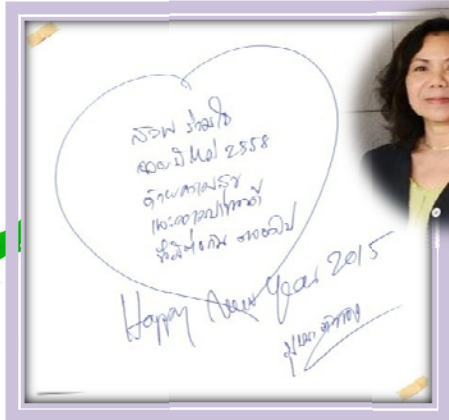 สวพ ร่วมใจ
ฉลองปีใหม่ 2558
ด้วยความสุข
และความปรารถนาดี
ที่มีต่อกัน ตลอดไป
Happy New Year 2015